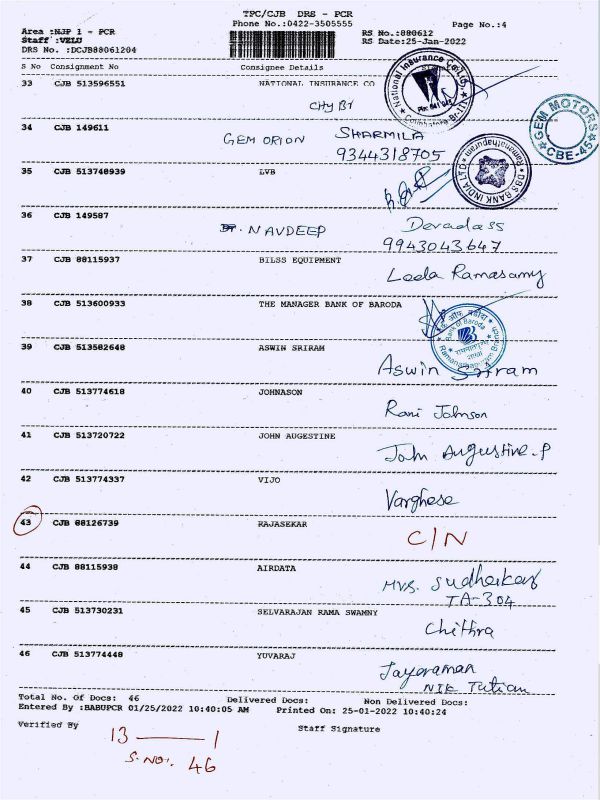 TPC/CJB DRS - PCR
Phone No.:0422-3505555 Page No.:4
Area :NJP 1 - PCR RS No.:880612
Staff :VELU RS Date:25-Jan-2022
DRS No. :DCJB88061204
S No Consignment No Consignee Details
33 CJB 513596551 NATIONAL INSURANCE CO
National Insurance Co. Ltd.
Coimbatore Br-III
GEM MOTORS
CBE-45
34 CJB 149611 GEM ORION SHARMILA
9344318705
35 CJB 513748939 LVB
DBS BANK INDIA LTD
Ramanathapuram
36 CJB 149587 DR. NAVDEEP Devadass
9943043647
37 CJB 88115937 BILSS EQUIPMENT
Leela Ramasamy
38 CJB 513600933 THE MANAGER BANK OF BARODA
Bank of Baroda
39 CJB 513582648 ASWIN SRIRAM
Aswin Sriram
40 CJB 513774618 JOHNASON
Rani Johnson
41 CJB 513720722 JOHN AUGESTINE
John Augustine. P
42 CJB 513774337 VIJO
Varghese
43 CJB 88126739 RAJASEKAR
C/N
44 CJB 88115938 AIRDATA
MVS. Sudhakar
TA-304
45 CJB 513730231 SELVARAJAN RAMA SWAMNY
Chithra
46 CJB 513774448 YUVARAJ
Jayaraman
Total No. Of Docs: 46 Delivered Docs: Non Delivered Docs:
Entered By :BABUPCR 01/25/2022 10:40:05 AM Printed On: 25-01-2022 10:40:24
Verified By Staff Signature
13 — 1
S. NO. 46